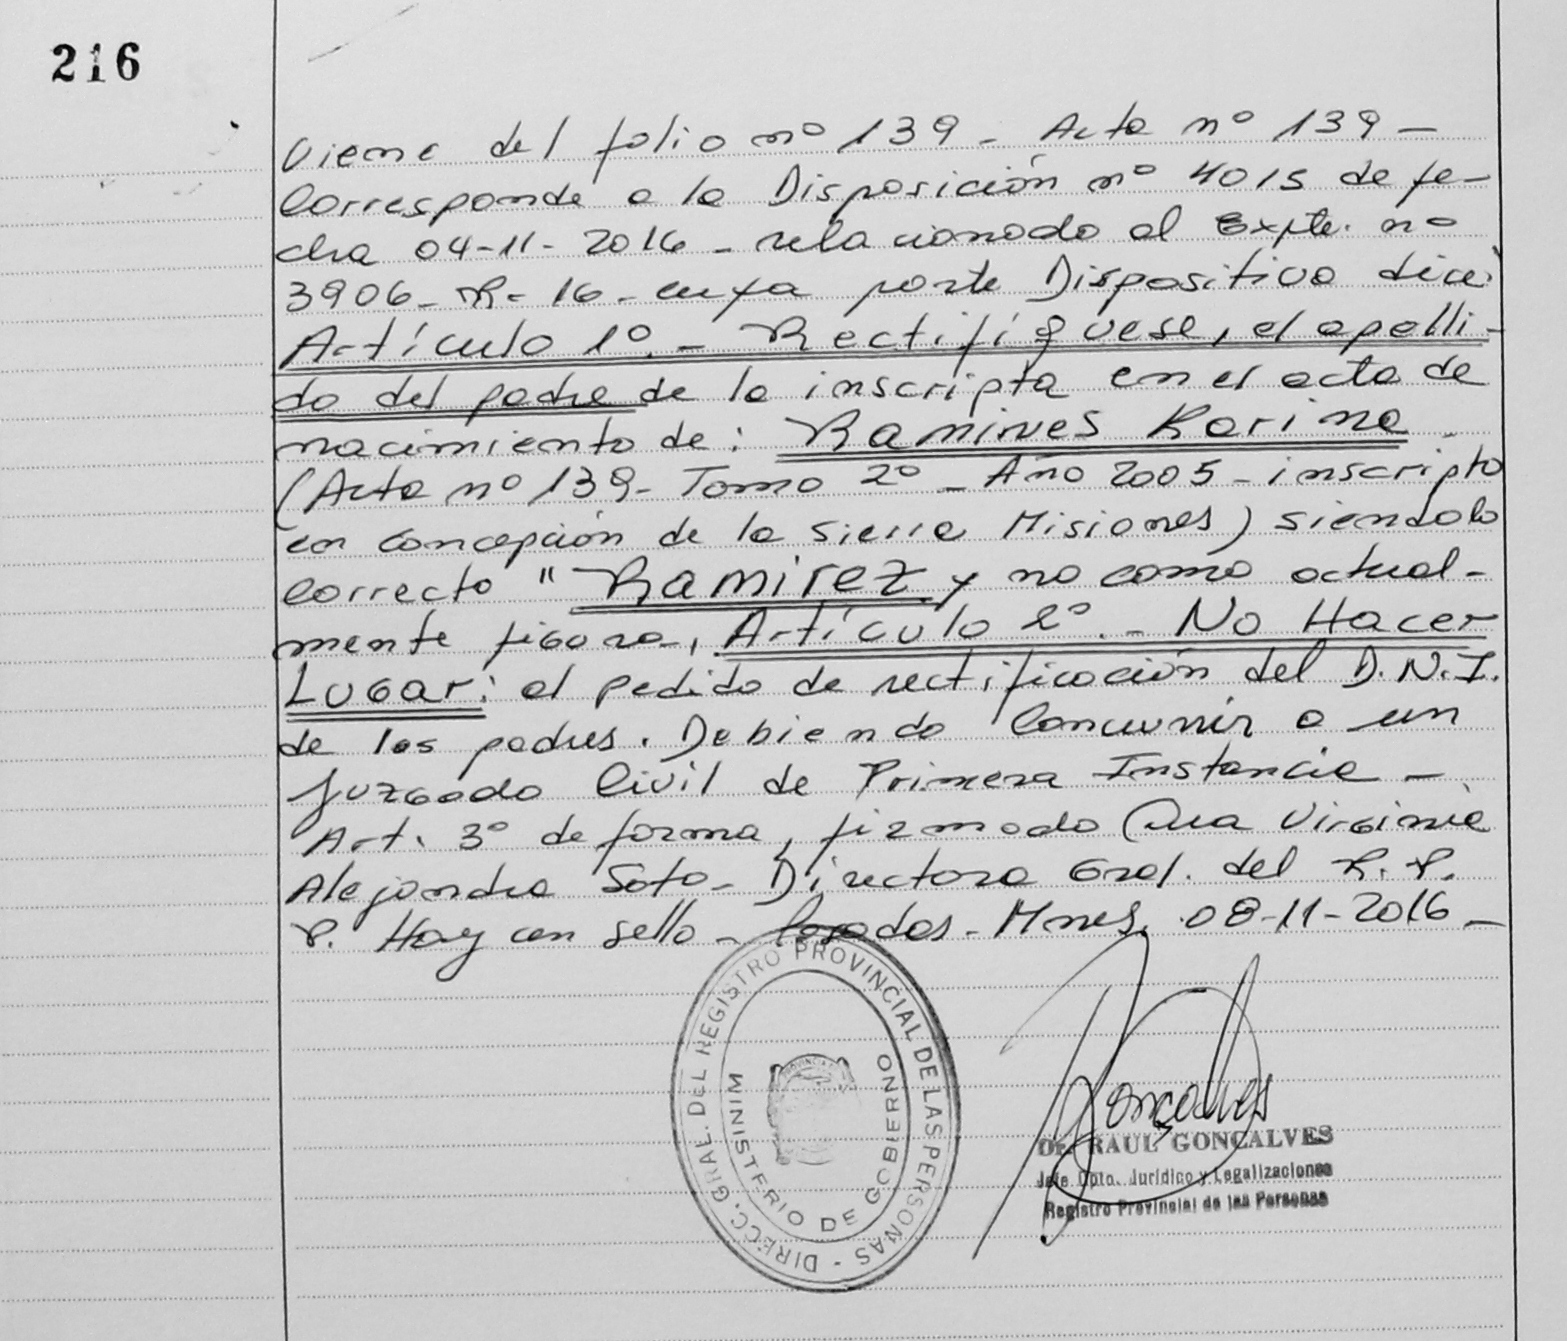 216
Viene del folio nº 139 - Acta nº 139 -
Corresponde a la Disposición nº 4015 de fe-
cha 04-11-2016 - relacionado al Expte. nº
3906-R-16- cuya parte Dispositiva dice:
Artículo 1º.- Rectifíquese, el apelli-
do del padre de la inscripta en el acta de
nacimiento de: Ramires Karina
(Acta nº 139- Tomo 2º - Año 2005 - inscripta
en Concepción de la Sierra Misiones) siendo lo
correcto " Ramirez y no como actual-
mente figura, Artículo 2º.- No Hacer
Lugar: al pedido de rectificación del D.N.I.
de los padres. Debiendo Concurrir a un
Juzgado Civil de Primera Instancia -
Art. 3º de forma, firmado Dra Virginia
Alejandra Soto- Directora Gral. del R.P.
P. Hay un sello - Posadas - Mnes, 08-11-2016 -
DIRECC. GRAL. DEL REGISTRO PROVINCIAL DE LAS PERSONAS -
MINISTERIO DE GOBIERNO
PROVINCIA
Gonçalves
Dr. RAUL GONÇALVES
Jefe Dpto. Jurídico y Legalizaciones
Registro Provincial de las Personas